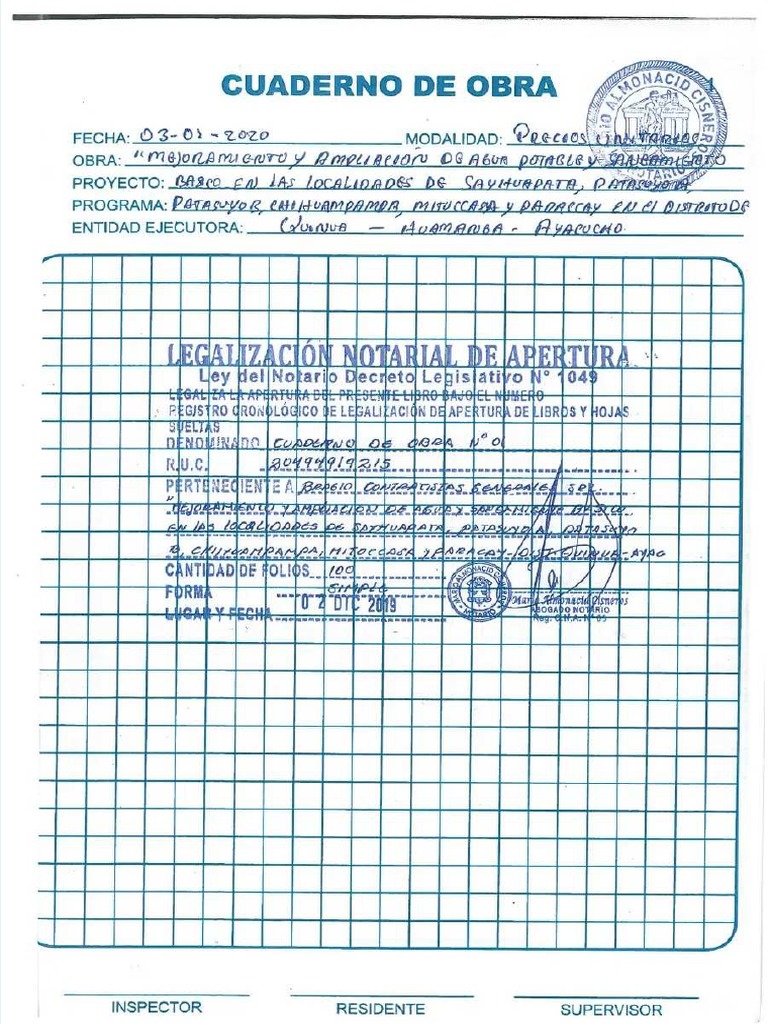 CUADERNO DE OBRA
MARIO ALMONACID CISNEROS
NOTARIO
FECHA: 03-01-2020 MODALIDAD: PRECIOS UNITARIOS
OBRA: "MEJORAMIENTO Y AMPLIACIÓN DE AGUA POTABLE Y SANEAMIENTO
PROYECTO: BASICO EN LAS LOCALIDADES DE SAYHUAPATA, PATASUYO A,
PROGRAMA: PATASUYO B, CHIHUAMPAMPA, MITOCCASA Y PARACCAY EN El DISTRITO DE
ENTIDAD EJECUTORA: QUINUA - HUAMANGA - AYACUCHO
LEGALIZACIÓN NOTARIAL DE APERTURA
Ley del Notario Decreto Legislativo N° 1049
LEGALIZA LA APERTURA DEL PRESENTE LIBRO BAJO EL NUMERO
REGISTRO CRONOLÓGICO DE LEGALIZACIÓN DE APERTURA DE LIBROS Y HOJAS
SUELTAS
DENOMINADO CUADERNO DE OBRA N° 01
R.U.C. 20494919215
PERTENECIENTE A BRAGIO CONTRATISTAS GENERALES SRL.
"MEJORAMIENTO Y AMPLIACION DE AGUA Y SANEAMIENTO BASICO
EN LAS LOCALIDADES DE SAYHUAPATA, PATASUYO A, PATASUYO
B, CHIHUAMPAMPA, MITOCCASA Y PARACAY - DIST QUINUA - AYAC
CANTIDAD DE FOLIOS 100
FORMA SIMPLE
LUGAR Y FECHA 02 DIC 2019
MARIO ALMONACID CISNEROS
NOTARIO
Mario Almonacid Cisneros
ABOGADO NOTARIO
Reg. C.N.A. N° 05
INSPECTOR RESIDENTE SUPERVISOR